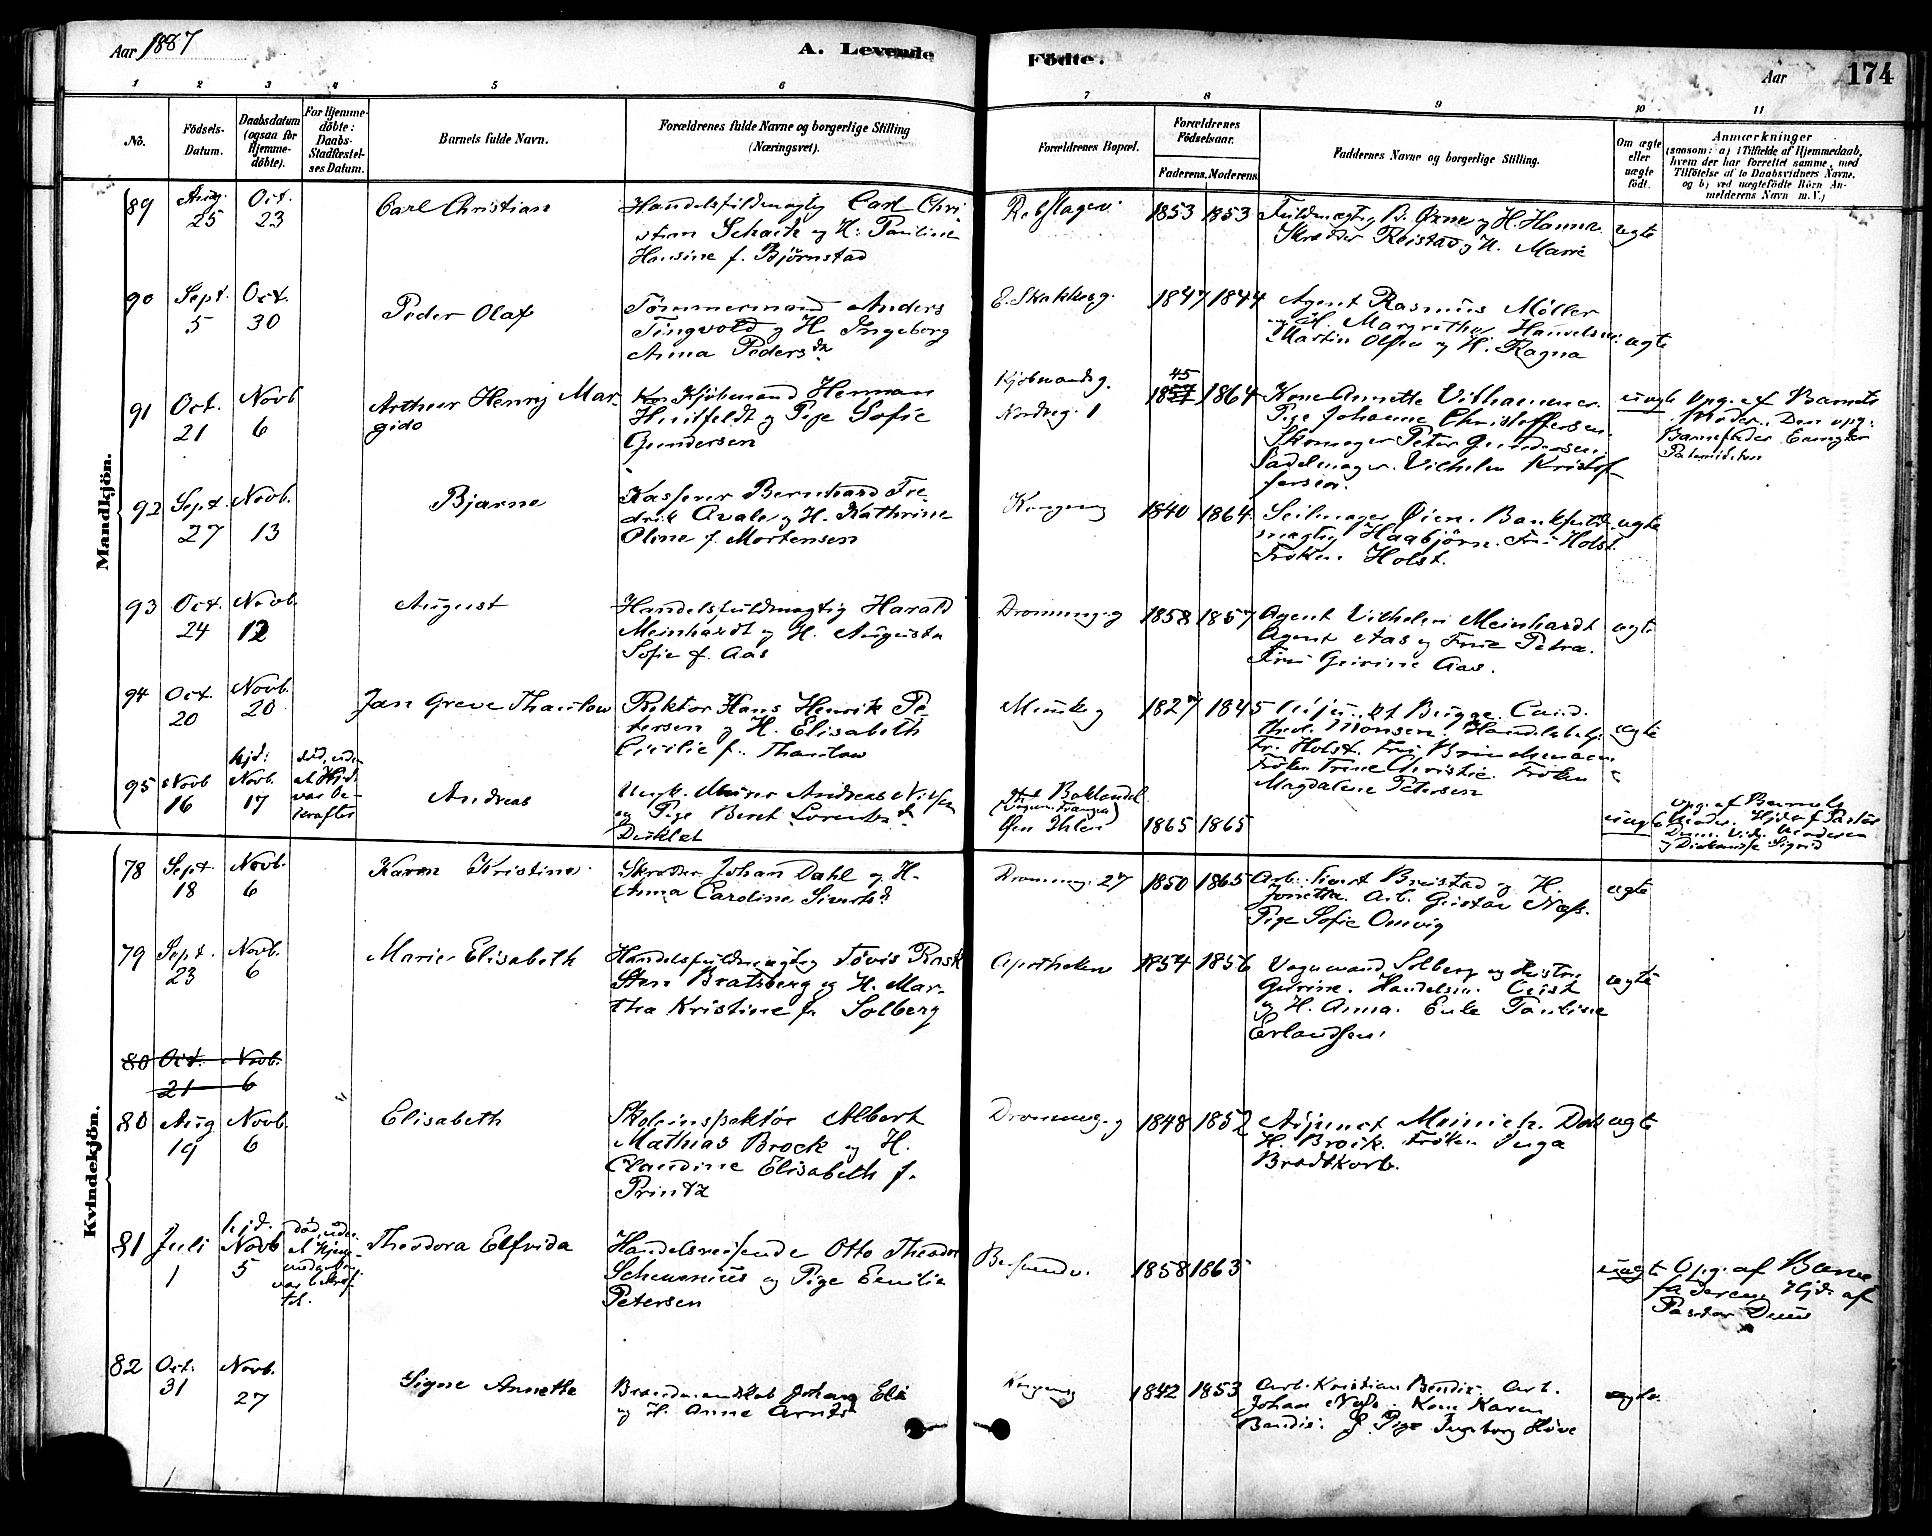 Aar 1887
A. Levende
Födte.
Aar 174
1 2 3 4 5 6 7 8 9 10 11
No.
Födsels-Datum.
Daabsdatum (ogsaa for Hjemme-döbte).
For Hjemme-döbte: Daabs-Stadfæstel-ses Datum.
Barnets fulde Navn.
Forældrenes fulde Navne og borgerlige Stilling (Næringsvei).
Forældrenes Bopæl.
Forældrenes Födselsaar.
Faderens. Moderens.
Faddernes Navne og borgerlige Stilling.
Om ægte eller uægte födt.
Anmærkninger
(saasom: a) i Tilfælde af Hjemmedaab,
hvem der har forrettet samme, med
Tilföielse af to Daabsvidners Navne,
og b) ved uægtefödte Börn An-
melderens Navn m. V.)
Mandkjön.
89 Aug. 25 Oct. 23
Carl Christian
Handelsfuldmægtig Carl Chri-
stian Schach og H. Pauline
Hansine f. Bjørnstad
1853 1853
Fuldmægtig B. Øxne og H. Hanna.
Skrædder Reistad og H. Marie
ægte
90 Sept. 5 Oct. 30
Peder Olaf
Tømmermand Anders
Tingvold og H. Ingeborg
Anna Pedersdr
E. Skakkesg.
1847 1844
Agent Rasmus Møller
og H. Margrethe. Handelsm.
Martin Olsen og H. Ragna
ægte
91 Oct. 21 Novb 6
Arthur Henry Mar-
gido
Kjøbmand Herman
Huitfeldt og Pige Sofie
Gundersen
Kjøbmandsg.
Nordreg. 1
45
1857 1864
Kone Annette Vithammer.
Pige Johanne Christoffersen.
Skomager Peter Gundersen.
Sadelmager Vilhelm Kristof-
fersen.
uægte
Opg. af Barnets
Moder. Den opg.
Barnefader
92 Sept. 27 Novb. 13
Bjarne
Kasserer Bernhard Fre-
drik Avale og H. Kathrine
Oline f. Mortensen
Kongensg
1840 1864
Seilmager Øien. Bankfuld-
mægtig Haabjörn. Fru Holst.
Frøken Holst.
ægte
93 Oct. 24 Novb. 12
August
Handelsfuldmægtig Harald
Meinhardt og H. Augusta
Sofie f. Aas
Dronning.g
1858 1857
Agent Vilhelm Meinhardt
Agent Aas og Frue Petra.
Fru Gurine Aas.
ægte
94 Oct. 20 Novb. 20
Jan Greve Thaulow
Rektor Hans Henrik Pe-
tersen og H. Elisabeth
Cicilie f. Thaulow
Munkeg
1827 1845
Adjunkt Bugge. Cand.
theol. Monsen.
Fr. Holst. Fru Brinchmann
Frøken Trine Christie. Frøken
Magdalene Petersen
ægte
95 Novb 16 hjd: Novb. 17
Andreas
Andreas Nilsen
og Pige Beret Lorentsdr
Dirklet
Baklandet
1865 1865
uægte
Opg. af Barnets
Moder. Hjd. af Pastor
og Diakonisse Sigrid
Kvindekjön.
78 Sept. 18 Novb. 6
Karen Kristine.
Skræder Johan Dahl og H.
Anna Caroline Sivertsdr
Dronning. 27
1850 1865
Arb. Sivert Breistad og H.
Jonetta. Arb. Gustav Næss.
Pige Sofie Omvig
ægte
79 Sept. 23 Novb. 6
Marie Elisabeth
Handelsfuldmægtig Tövis Rask
Sten Bratsberg og H. Mar-
tha Kristine f. Solberg
Apotheken
1854 1856
Vognmand Solberg og Hustru
Gurine. Handelsm. Quist
og H. Anna. Enke Pauline
Erlandsen.
ægte
80 Oct. 21 Novb. 6
80 Aug 19 Novb. 6
Elisabeth
Skoleinspektør Albert
Mathias Brock og H.
Claudine Elisabeth f.
Printz
Dronning.g
1848 1852
Adjunct Meinich. Do
H. Brock. Frøken Inga
Bradtkorb.
ægte
81 Juli 1 hjd. Novb 5
Theodora Elfrida
Handelsreisende Otto Theodor
Schewenius og Pige Emilie
Petersen
1858 1863
uægte
Opg. af Barne-
faderen. Hjd. af
Pastor Duus
82 Oct. 31 Novb. 27
Signe Annette
Brandmandskab Johan Eli
og H. Anne Arntsdr
Kongensg
1842 1853
Arb. Kristian Bendix. Arb.
Johan Næss. Kone Karen
Bendix. Pige Ingeborg Höve
ægte.